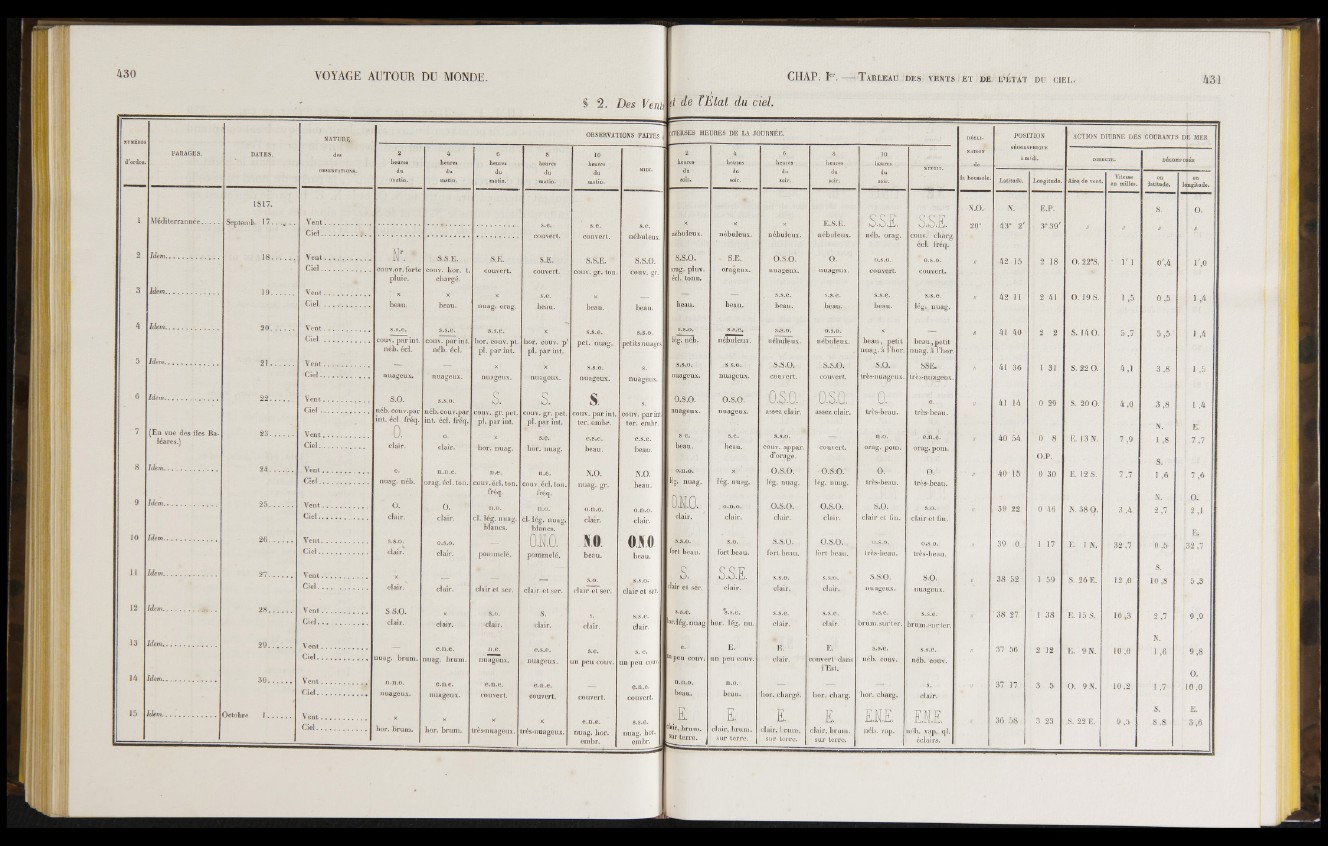 430
VOYAGE AUTOUR DU MONDE.
§ 2. Des Vents
NUMÉROS d'ordre. PARAGES. DATES. NATURE des OBSERVATIONS. OBSERVATIONS FAITES
2 heures du matin. 4 heures du matin. 6 heures du matin. 8 heures du matin. 10 heures du matin. MIDI.
1817.
1 Méditerrannée Septemb. 17 Vent s.e. s.e. s.e.
Ciel couvert. couvert. nébuleux.
2 Idem 18 Vent S.S.E. S.E. S.E. S.S.E. S.S.O.
Ciel couv. or. forte pluie. couv. hor. t. chargé. couvert. couvert. couv. gr. ton. couv. gr.
3 Idem 19 Vent × × × s.e. × —
Ciel beau. beau. nuag. orag. beau. beau. beau.
4 Idem 20 Vent s.s.e. s.s.e. s.s.e. × s.s.e. s.s.o.
Ciel couv. par int. néb. écl. couv. par int. néb. écl. hor. couv. pl. pl. par int. hor. couv. p' pl. par int. pet. nuag. petits nuages
5 Idem 21 Vent — — × × s.s.o. s.
Ciel nuageux. nuageux. nuageux. nuageux. nuageux. nuageux.
6 Idem 22 Vent S.O. s.s.o. S. S. S. s.
Ciel néb. couv. par int. écl. fréq. néb. couv. par int. écl. fréq. couv. gr. pet. pl. par int. couv. gr. pet. pl. par int. couv. par int. ter. embr. couv. par int. ter. embr.
7 (En vue des îles Baléares.) 23 Vent O. o. × s.e. e.s.e. e.s.e.
Ciel clair. clair. hor. nuag. hor. nuag. beau. beau.
8 Idem 24 Vent e. n.n.e. n.e. n.e. N.O. N.O.
Ciel nuag. néb. orag. écl. ton. couv. écl. ton. fréq. couv. écl. ton. fréq. nuag. gr. beau.
9 Idem 25 Vent O. O. n.o. n.o. o.n.o. o.n.o.
Ciel clair. clair. cl. lég. nuag. blancs. cl. lég. nuag. blancs. clair. clair.
10 Idem 26 Vent s.s.o. o.s.o. — O.N.O. NO. ONO
Ciel clair. clair. pommelé. pommelé. beau. beau.
11 Idem 27 Vent × — — — s.o. s.s.o.
Ciel clair. clair. clair et ser. clair et ser. clair et ser. clair et ser.
12 Idem 28 Vent S S.O. × s.o. S. s. s.s.e.
Ciel clair. clair. clair. clair. clair. clair.
13 Idem 29 Vent — e.n.e. n.e. e.s.e. s.e. s.e.
Ciel nuag. brum. nuag. brum. nuageux. nuageux. un peu couv. un peu couv.
14 Idem 30 Vent n.n.o. e.n.e. e.n.e. e.n.e. — e.n.e.
Ciel nuageux. nuageux. couvert. couvert. couvert. couvert.
15 Idem Octobre 1 Vent × × × × e.n.e. s.s.e.
Ciel hor. brum. hor. brum. très-nuageux. très-nuageux. nuag. hor. embr. nuag. hor. embr.
CHAP. Ier. — TABLEAU DES VENTS ET DE L'ÉTAT DU CIEL.
431
et de l'État du ciel.
DIVERSES HEURES DE LA JOURNÉE. DÉCLINAISON de la boussole. POSITION GÉOGRAPHIQUE à midi. ACTION DIURNE DES COURANTS DE MER
2 heures du soir. 4 heures du soir. 6 heures du soir. 8 heures du soir. 10 heures du soir. MINUIT. Latitude. Longitude. DIRECTE. Aire de vent. Vitesse en milles. DÉCOMPOSÉE en latitude. en longitude.
N.O. N. E.P. S. O.
× × × E.S.E. S.S.E. S.S.E. 20° 43° 2' 3° 39'
nébuleux. nébuleux. nébuleux. nébuleux. néb. orag. couv. charg. écl. fréq.
S.S.O. S.E. O.S.O. O. o.s.o. o.s.o. 42 15 2 18 O. 22°S. 1' 1 0',4 1',0
orag. pluv. écl. tonn. orageux. nuageux. nuageux. couvert. couvert.
— — s.s.e. s.s.e. s.s.e. s.s.e. 42 11 2 41 O. 19 S. 1 ,5 0 ,5 1 ,4
beau. beau. beau. beau. beau. lég. nuag.
s.s.o. s.s.o. s.s.o. o.s.o. × — 41 40 2 2 S. 14 O. 5 ,7 5 ,5 1 ,4
lég. néb. nébuleux. nébuleux. nébuleux. beau, petit nuag. à l'hor. beau, petit nuag. à l'hor
s.s.o. s s.o. S.S.O. S.S.O. S.O. SSE. 41 36 1 31 S. 22 O. 4 ,1 3 ,8 1 ,5
nuageux. nuageux. couvert. couvert. très-nuageux. très-nuageux.
O.S.O. O.S.O. O.S.O. O.S.O. O. o. 41 14 0 29 S. 20 O. 4 ,0 3 ,8 1 ,4
nuageux. nuageux. assez clair. assez clair. très-beau. très-beau.
N. E.
s e. s.e. s.s.o. — n.o. o.n.o. 40 54 0 8 E. 13 N. 7 ,9 1 ,8 7 ,7
beau. beau. couv. appar. d'orage. couvert. orag. pom. orag. pom.
O.P. S.
o.n.o. × O.S.O. O.S.O. O. O. 40 15 0 30 E. 12 S. 7 ,7 1 ,6 7 ,6
lég. nuag. lég. nuag. lég. nuag. lég. nuag. très-beau. très-beau.
N. O.
O.N.O. o.n.o. O.S.O. O.S.O. S.O. s.o. 39 22 0 46 N. 38 O. 3 ,4 2 ,7 2 ,1
clair. clair. clair. clair. clair et fin. clair et fin.
E.
s.s.o. s.o. S.S.O. O.S.O. o.s.o. o.s.o. 39 0 1 17 E. 1 N. 32 ,7 0 ,5 32 ,7
fort beau. fort beau. fort beau. fort beau. très-beau. très-beau.
S.
S. S.S.E. s.s.o. s.s.o. S.S.O. S.O. 38 52 1 59 S. 26 E. 12 ,0 10 ,8 5 ,3
clair et sér. clair. clair. clair. nuageux. nuageux.
s.s.e. s.s.o. s.s.o. s.s.e. s.s.e. s.s.e. 38 27 1 38 E. 15 S. 10 ,3 2 ,7 9 ,9
hor. lég. nuag hor. lég. nu. clair. clair. brum. sur ter. brum. sur ter.
N.
e. E. E. E. s.s.e. s.s.e. 37 56 2 12 E. 9 N. 10 ,0 1 ,6 9 ,8
un peu couv. un peu couv. clair. couvert dans l'Est. néb. couv. néb. couv.
O.
n.n.o. n.o. — — — s. 37 17 3 5 O. 9 N. 10 ,2 1 ,7 10 ,0
beau. beau. hor. chargé. hor. charg. hor. charg. clair.
S. E.
E. E. E. E. E.N.E. E.N.E. 36 58 3 23 S. 22 E. 9 ,5 8 ,8 3 ,6
clair, brum. sur terre. clair, brum. sur terre. clair, brum. sur terre. clair, brum. sur terre. néb. vap. néb. vap. ql. éclairs.